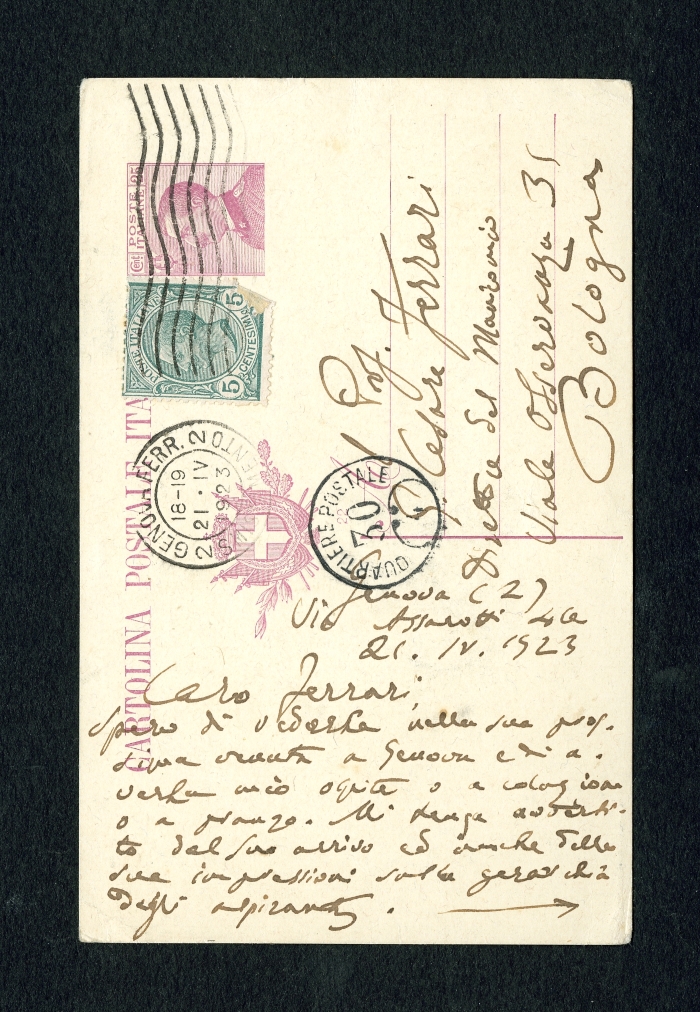 CARTOLINA POSTALE ITA
POSTE ITALIANE
Cent. 25
POSTE ITALIANE
5 CENTESIMI 5
GENOVA FERR. 2
18-19
21·IV
1923
2
QUARTIERE POSTALE
30
Prof.
Cesare Ferrari
del Manicomio
Viale Osservanza 31
Bologna
Genova (2)
Via Assarotti 42
21. IV. 1923
Caro Ferrari,
spero di vederla nella sua pros-
sima venuta a Genova e di a-
verla mio ospite o a colazione
o a pranzo. Mi tenga avverti-
to del suo arrivo ed anche delle
sue impressioni sulla gerarchia
degli aspiranti.